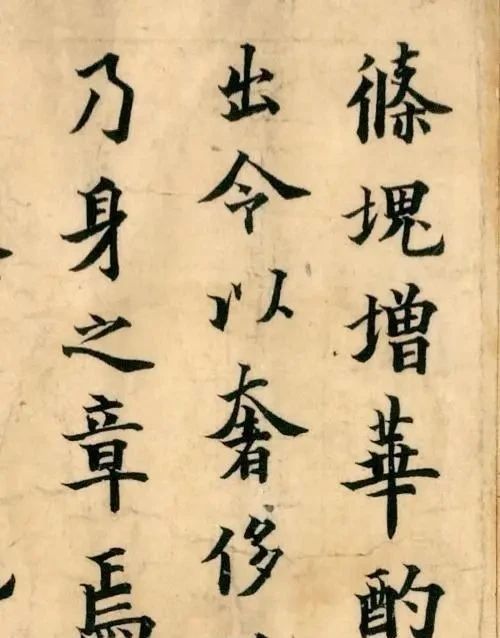 條塊增華酌
出令以奢侈
乃身之章焉